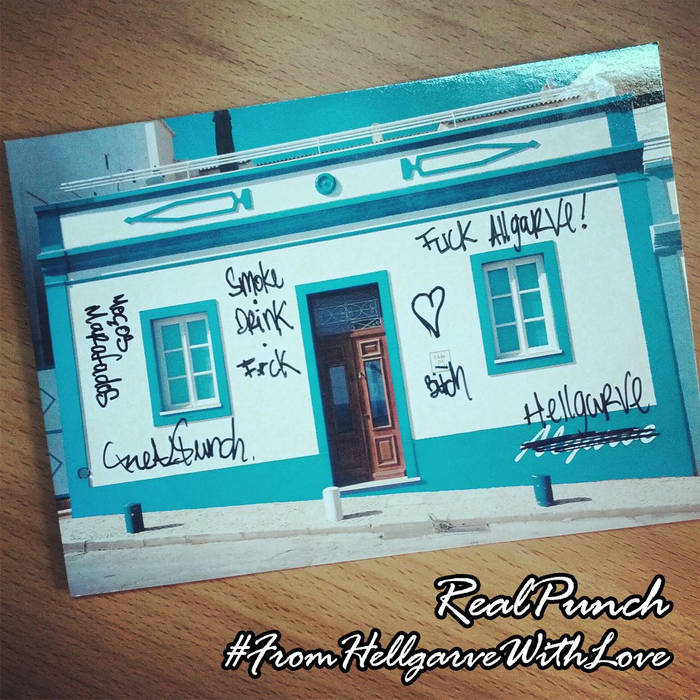 Fuck Allgarve!
Smoke
Drink
Fuck
Moços
Marafados
Bitch
Hellgarve
Algarve
RealPunch
#FromHellgarveWithLove